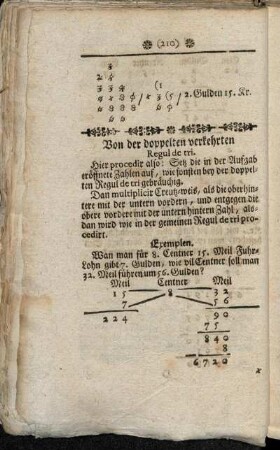 (210)
2. Gulden 15. Kr.
Von der doppelten verkehrten
Regul de tri.
Hier procedir also: Setz die in der Aufgab
eröffnete Zahlen auf, wie sonsten bey der doppel-
ten Regul de tri gebräuchig.
Dan multiplicir Creutz-weis, als die oberhin-
tere mit der untern vordern, und entgegen die
obere vordere mit der untern hintern Zahl, als-
dan wird wie in der gemeinen Regul de tri pro-
cedirt.
Exemplen.
Wan man für 8. Centner 15. Meil Fuhr-
Lohn gibt 7. Gulden, wie vil Centner soll man
32. Meil führen um 56. Gulden?
Meil Centner Meil
15 8 32
7 56
224 90
75
840
8
6720